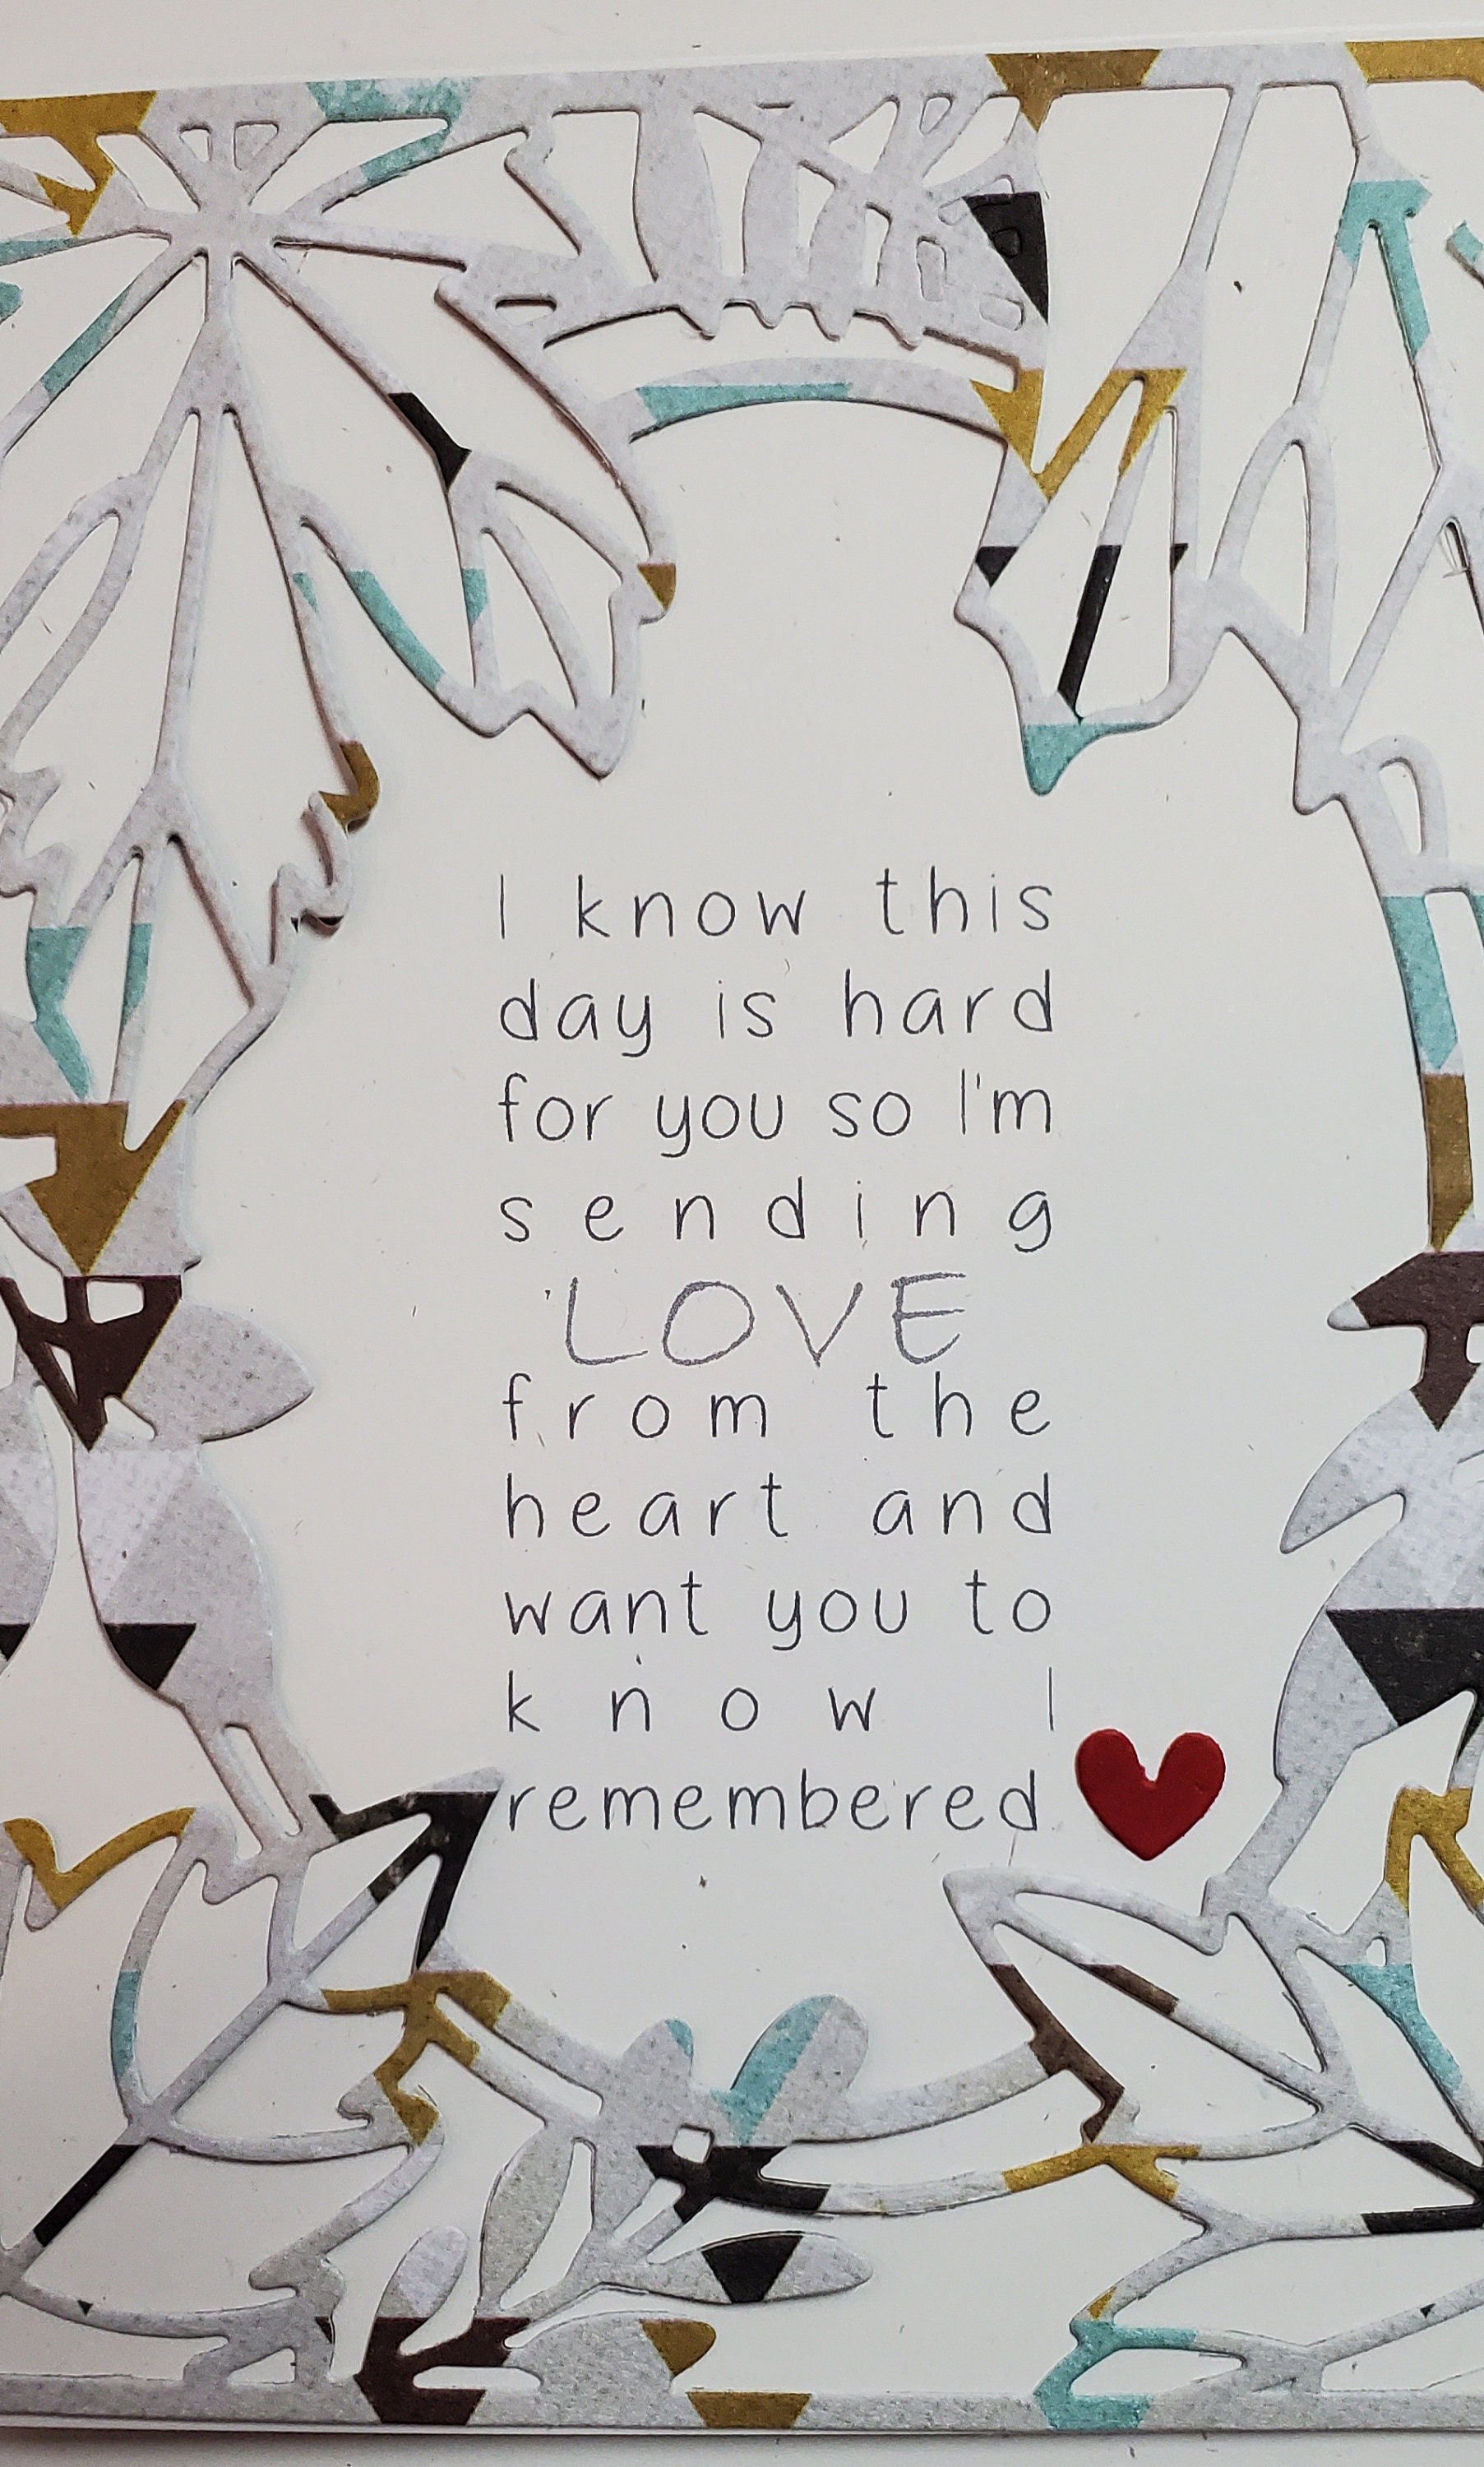 I know this
day is hard
for you so I'm
sending
LOVE
from the
heart and
want you to
know I
remembered